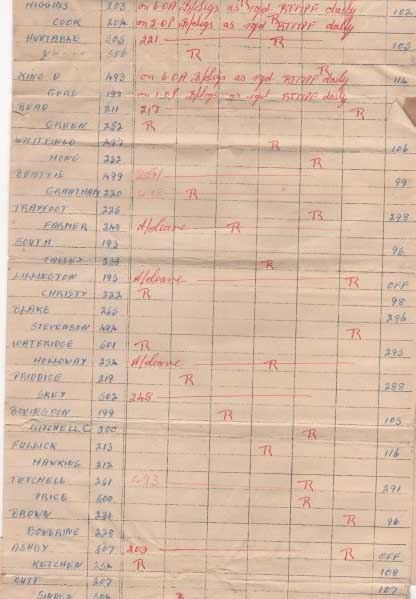 HIGGINS 203 on 6 OA Bldgs as rqd RTMPF daily 102
COOK 204 on 2 OP Bldgs as rqd R RTMPF daily
HUXTABLE 505 221 R 103
506 R
KING D 493 on 6 OA Bldgs as rqd RTMPF daily R 114
GORE 197 on 1 OP Bldgs as rqd RTMPF daily
READ 211 217 R
GREEN 252 R
WHITFIELD 497 R 106
HONE 222 R
BEATTIE 499 99
GRANTHAM 220 R
TRAYFOOT 226 R 298
FARMER 248 A/leave R
SOUTH 193 96
R
LILLINGTON 195 A/leave R OFF
CHRISTY 222 R 98
BLAKE 265 296
STEVENSON 494 R
WATERIDGE 501 R 295
HOLLOWAY 234 A/leave R
PRIDDICE 219 R 288
SKEY 502 248
BOVINGDON 199 R 105
MITCHELL.C. 200 R
FULLICK 213 R 116
HAWKINS 212
TUTCHELL 261 493 R 291
PRICE 500 R
BROWN 221 R 96
BOWERING 228
ASHBY 507 203 R OFF
KETCHEN 254 R 108
CUTT 207 107
R